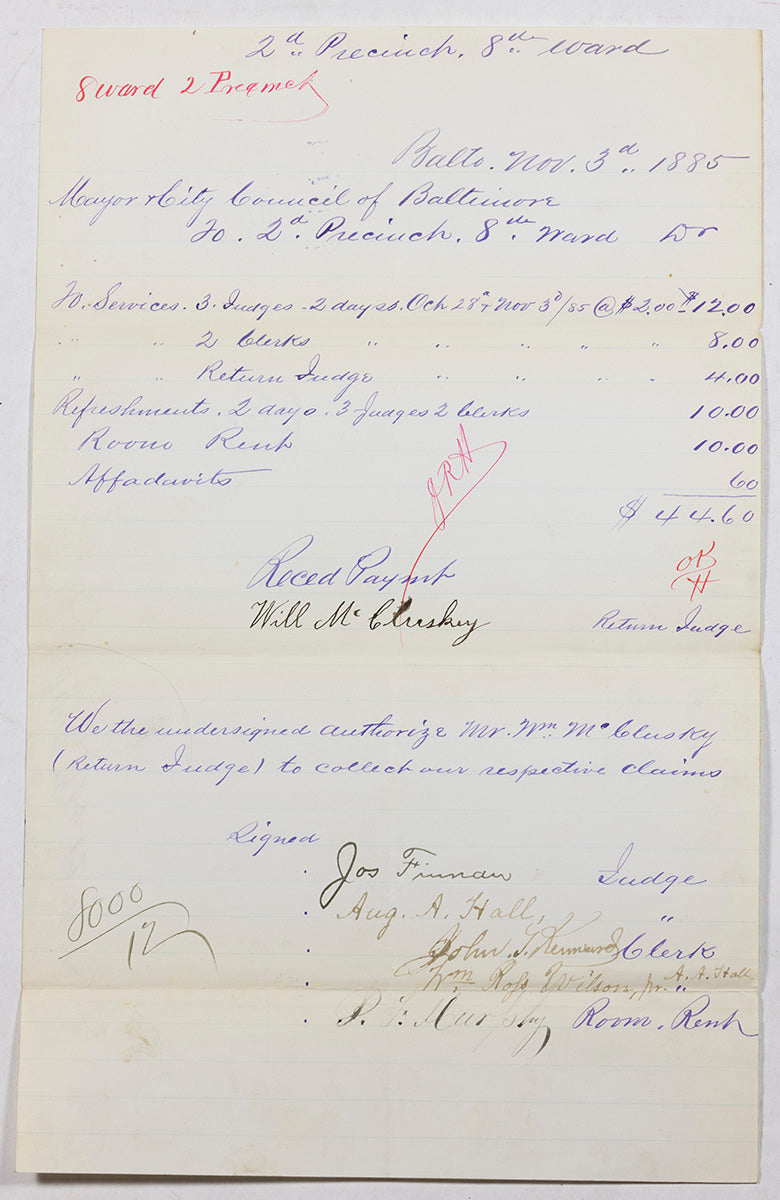 2d Precinct. 8th Ward
8 Ward 2 Precinct
Balto. Nov. 3d. 1885
Mayor & City Council of Baltimore
To. 2d. Precinct. 8th. Ward Dr
To. Services. 3. Judges - 2 days. Oct 28th & Nov 3d/85 @ $2.00 $12.00
" " 2 Clerks " " " " " 8.00
" " Return Judge " " " " 4.00
Refreshments. 2 days. 3 Judges 2 Clerks 10.00
Room Rent 10.00
Affadavits 60
$ 44.60
JRH
OK
H
Reced Paymt
Will McCluskey Return Judge
We the undersigned authorize Mr. Wm. McClusky
(Return Judge) to collect our respective claims
Signed
Jos Finnan Judge
Aug. A. Hall, "
John T. Kennard Clerk
Wm Ross Wilson, pr. A. A. Hall "
8000
12
P. F. Murphy Room. Rent